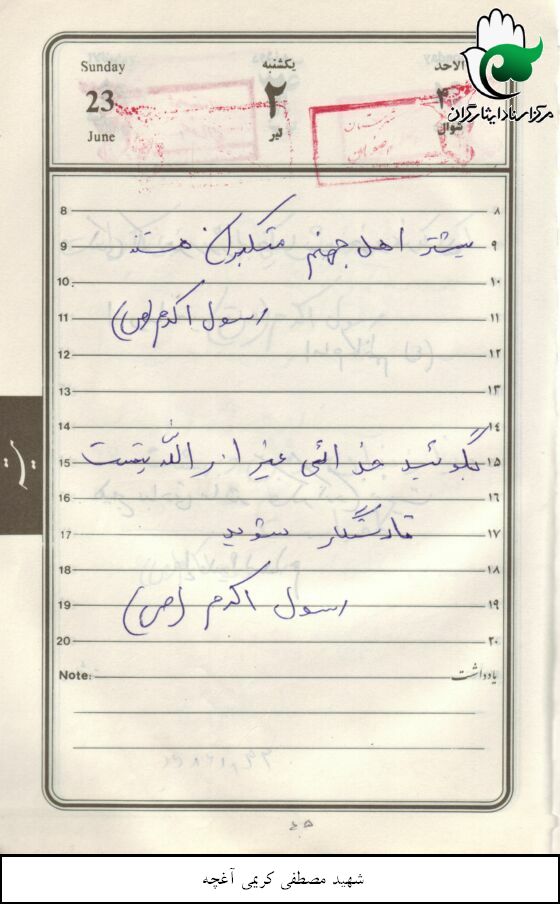 Sunday یکشنبه الاحد
23 ۲
June تیر شوال
مرکز اسناد ایثارگران
8 ۸
9 بیشتر اهل جهنم متکبران هستند ۹
10 ۱۰
11 رسول اکرم (ص) ۱۱
12 ۱۲
13 ۱۳
14 ۱۴
15 بگوئید خدائی غیر از الله نیست ۱۵
16 ۱۶
17 تا رستگار شوید ۱۷
18 ۱۸
19 رسول اکرم (ص) ۱۹
20 ۲۰
Note: یادداشت
تیر
شهید مصطفی کریمی آغچه